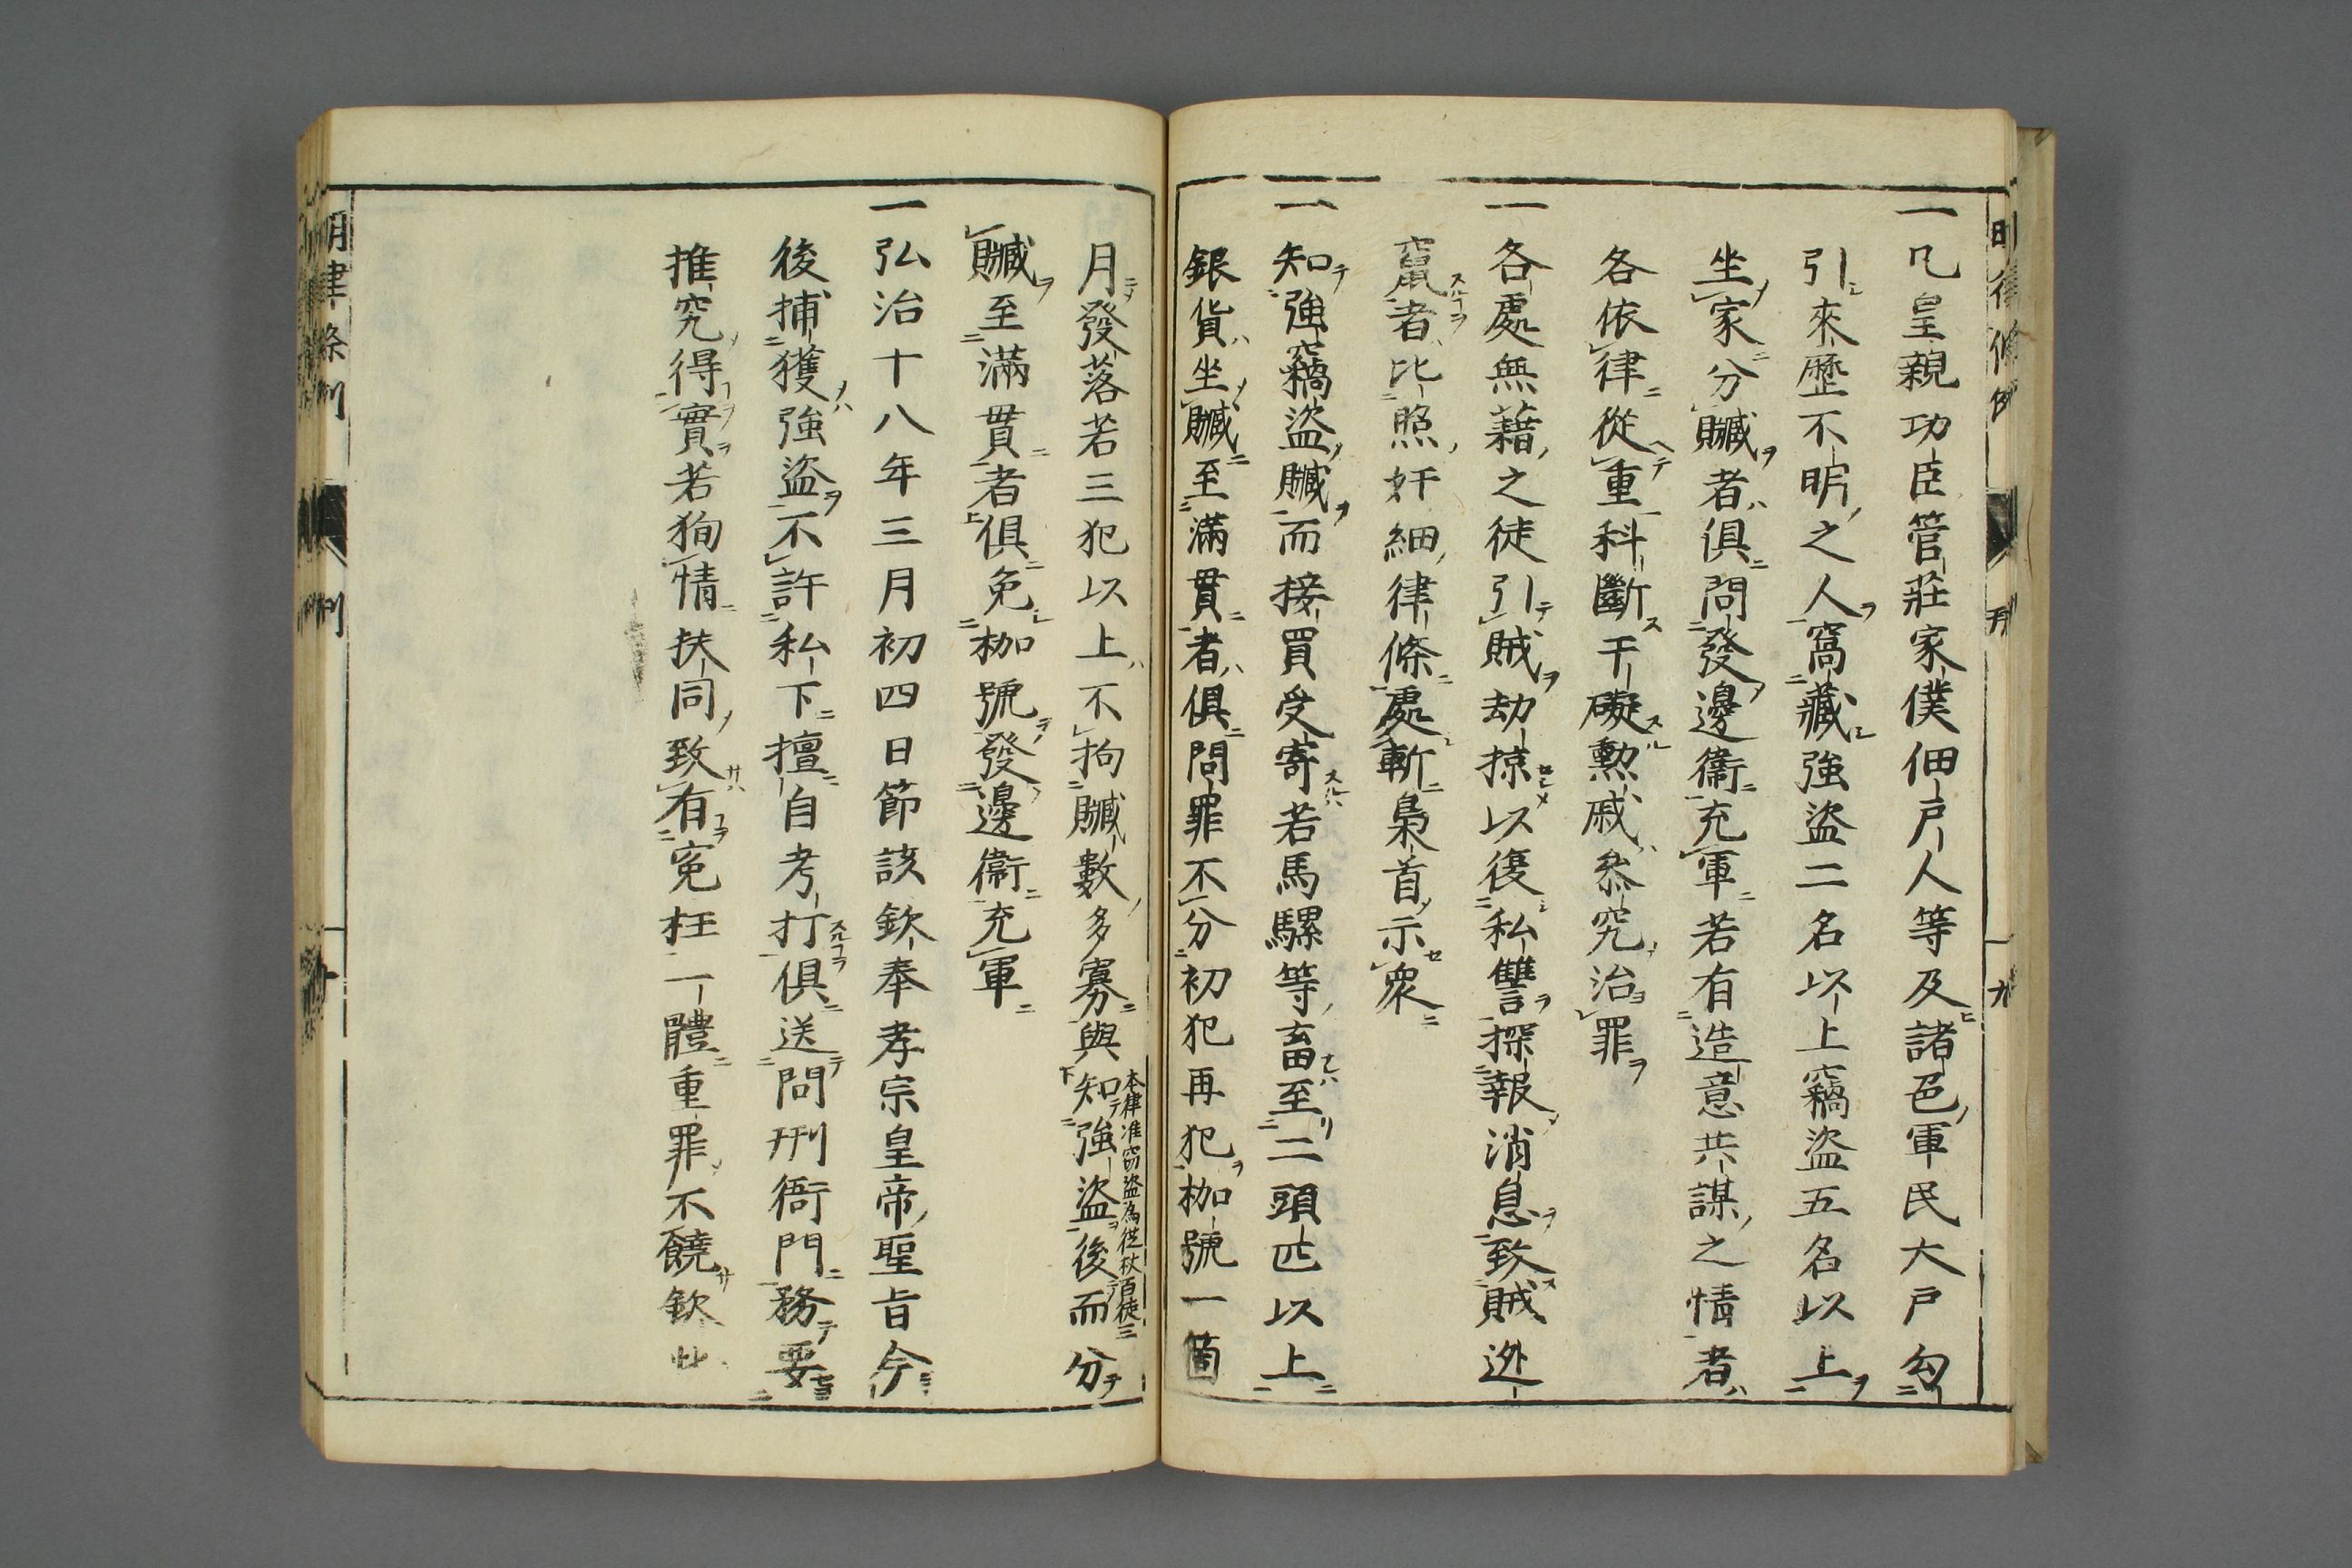 明律條例 刑 十九
一凡皇親功臣管莊家僕佃戶人等及諸色軍民大戶勾
引來歷不明之人窩藏強盜二名以上竊盜五名以上
坐家分贓者俱問發邊衞充軍若有造意共謀之情者
各依律從重科斷干礙勲戚叅究治罪
一各處無藉之徒引賊劫掠以復私讐探報消息致賊迯
竄者比照奸細律條處斬梟首示衆
一知強竊盜贓而接買受寄若馬騾等畜至二頭匹以上
銀貨坐贓至滿貫者俱問罪不分初犯再犯枷號一箇
月發落若三犯以上不拘贓數多寡與知強盜後而分
本律准窃盜為從杖百徒三
贓至滿貫者俱免枷號發邊衞充軍
一弘治十八年三月初四日節該欽奉孝宗皇帝聖旨今
後捕獲強盜不許私下擅自考打俱送問刑衙門務要
推究得實若狥情扶同致有寃枉一體重罪不饒欽此
明律條例 刑